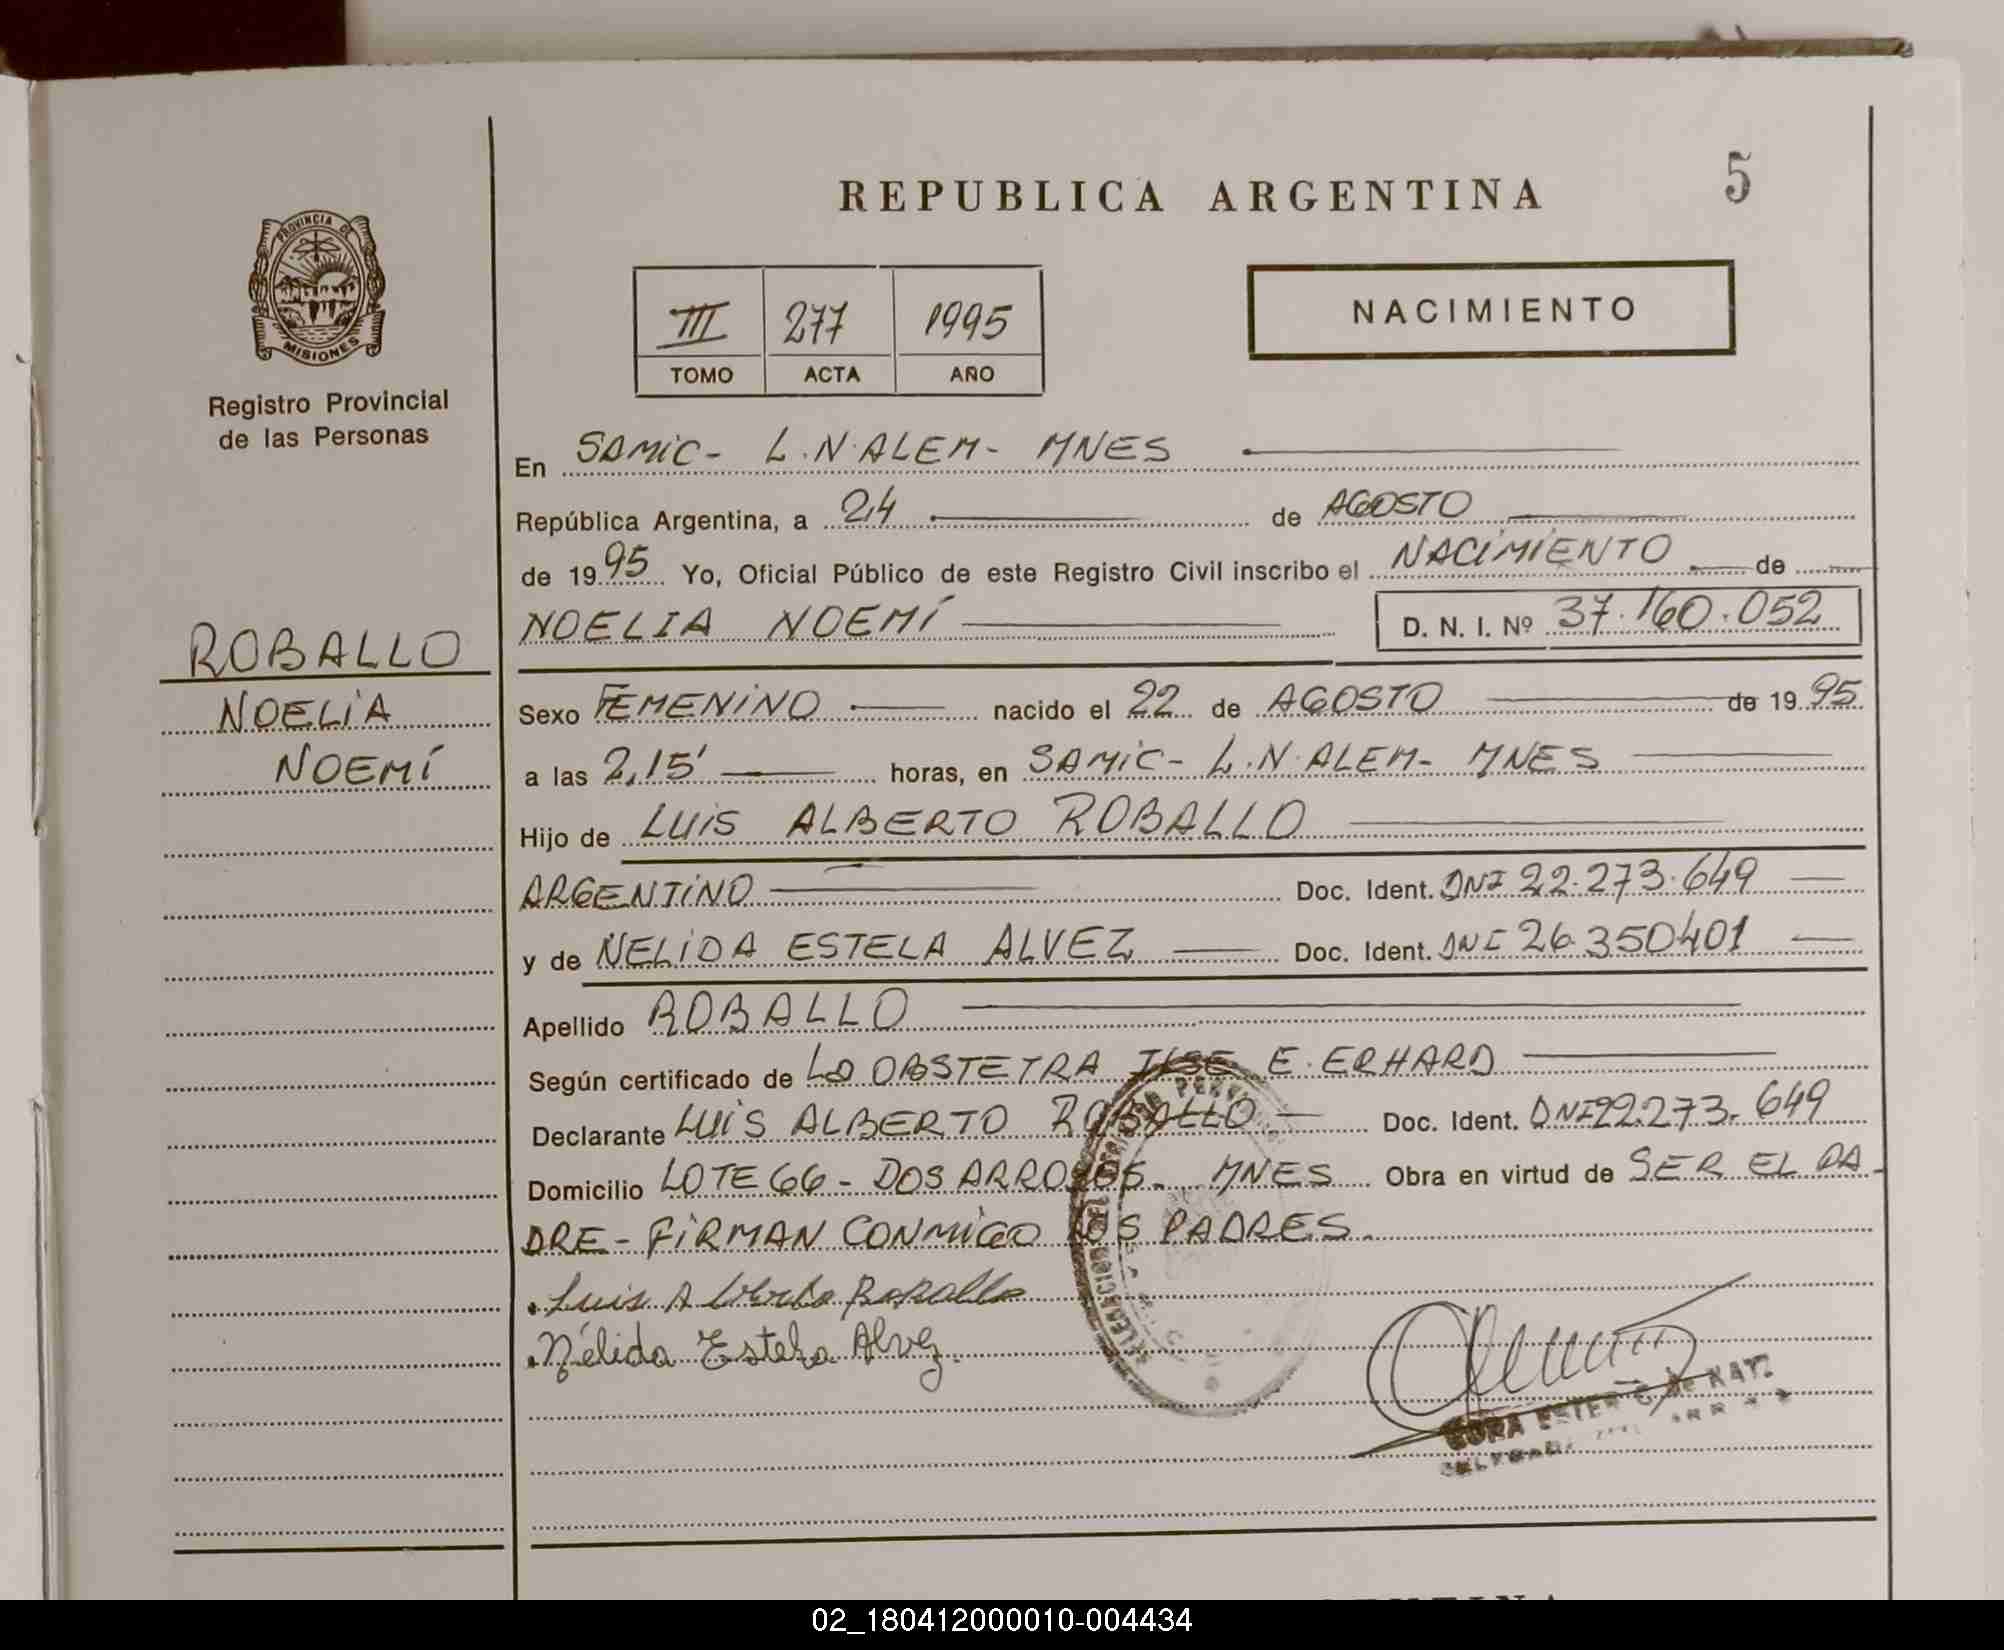 REPUBLICA ARGENTINA
5
PROVINCIA DE
MISIONES
Registro Provincial
de las Personas
III 277 1995
TOMO ACTA AÑO
NACIMIENTO
En SAMIC- L.N.ALEM- MNES
República Argentina, a 24 de AGOSTO
de 1995 Yo, Oficial Público de este Registro Civil inscribo el NACIMIENTO de
NOELIA NOEMÍ D. N. I. Nº 37.160.052
ROBALLO
NOELIA
NOEMÍ
Sexo FEMENINO nacido el 22 de AGOSTO de 1995
a las 2,15' horas, en SAMIC- L.N.ALEM- MNES
Hijo de LUIS ALBERTO ROBALLO
ARGENTINO Doc. Ident. DNI 22.273.649
y de NELIDA ESTELA ALVEZ Doc. Ident. DNI 26.350401
Apellido ROBALLO
Según certificado de LA OBSTETRA ILSE E. ERHARD
Declarante LUIS ALBERTO ROBALLO Doc. Ident. DNI 22.273.649
Domicilio LOTE 66 - DOS ARROYOS - MNES Obra en virtud de SER EL PA-
DRE - FIRMAN CONMIGO LOS PADRES.
Luis Alberto Roballo
Nélida Estela Alvez.
ESTER
02_180412000010-004434